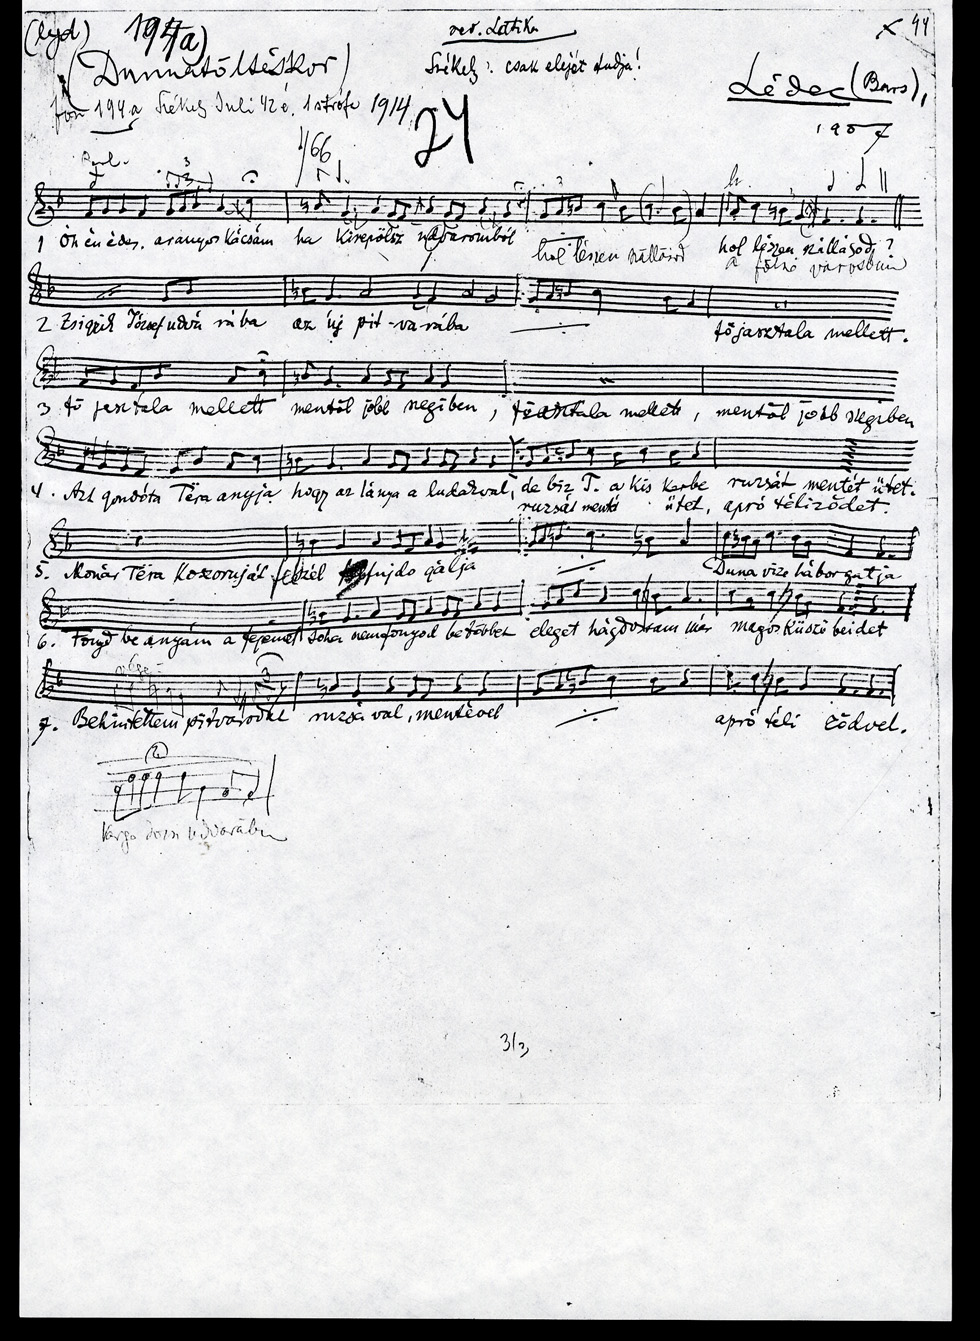 (lyd) 194/a) red. Latika x 44
(Dunnatöltéskor) Székely: csak elejét tudja!
Lédec (Bars),
fon 194a Székely Juli 42 é. 1 strófa 1914
24
1907
Parl. 3 1/66
1 Óh én édes, aranyos kácsám ha kirepölsz udvaromból hol lészen szállásod hol lészen szállásod?
a fölső városom
2 Zsigrik József udvarába az új pit-varába főjasztala mellett.
3 fő jasztala mellett mentől jobb szegiben, főasztala mellett, mentől jobb szegiben
4. Azt gondóta Téra anyja hogy az lánya a ludakval, de biz T. a kis kerbe ruzsát mentét ütet.
ruzsát mentét ütet, apró téliződet.
5. Monár Téra koszoruját felszél fujdogálja Duna vize háborgatja
6. Fonyd be anyám a fejemet soha nem fonyod be többet eleget hágdostam már magos küszöbeidet
7. Behintettem pitvarodat ruzsával, mentével apró téli ződvel.
Varga udvarában
3/3